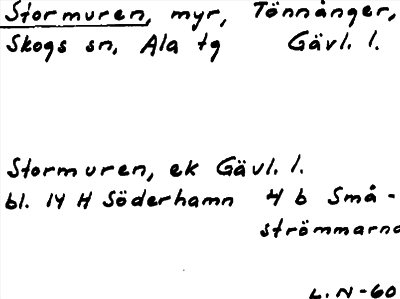 Stormuren, myr, Tönnånger,
Skogs sn, Ala tg Gävl. l.
Stormuren, ek Gävl. l.
bl. 14 H Söderhamn 4 b Små-
strömmarna
L. N-60